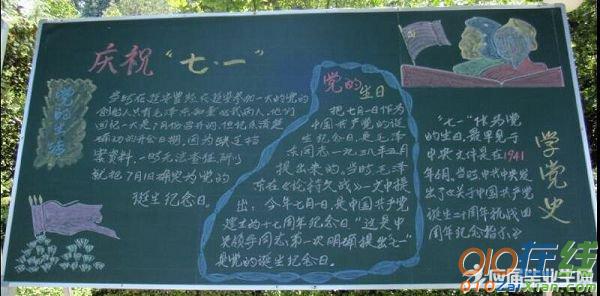 庆祝"七·一"
党的生活
当时在延安曾经参加一大的党的
创始人只有毛泽东和董必武两人,他们
回忆一大是7月份召开的,但记不清楚
确切的开会日期,因为缺乏档
案资料,一时无法查证,所以
就把7月1日确定为党的
诞生纪念日。
党的生日
把七月一日作为
中国共产党的诞
生纪念日,是毛泽
东同志一九三八年五月
提出来的,当时毛泽
东在《论持久战》一文中提
出:今年七月一日,是中国共产党
建立的十七周年纪念日"这是中
央领导同志第一次明确提出七一
是党的诞生纪念日。
"七一"作为党
的生日,最早见于
中央文件是在1941
年6月,当时中共中央发
出了《关于中国共产党
诞生二十周年抗战四
周年纪念指示》
学党史
910在线